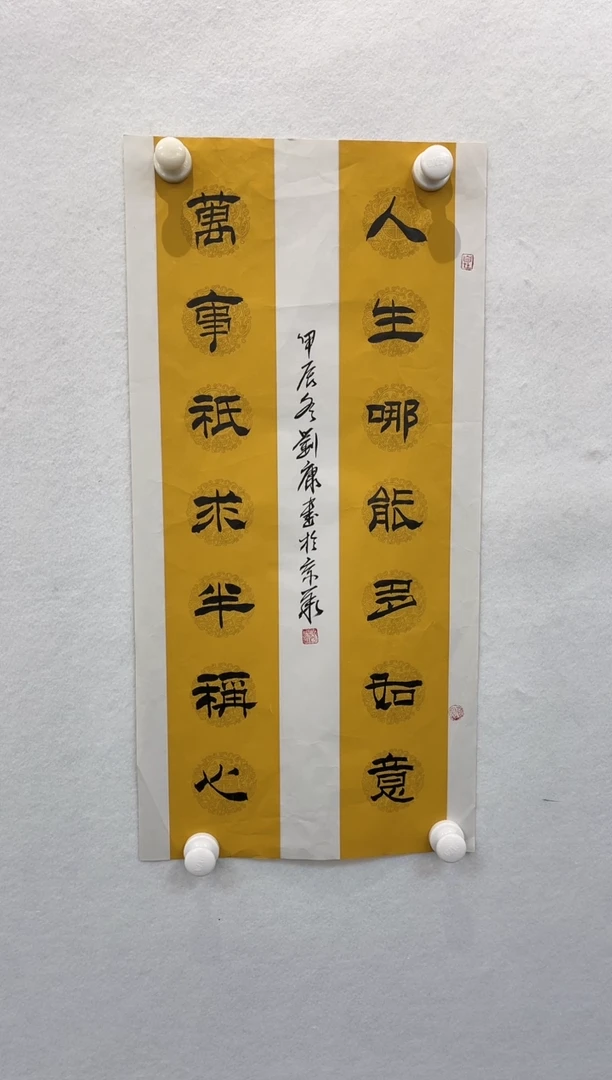 人生哪能多如意
萬事祇求半稱心
甲辰冬劉康書於京華